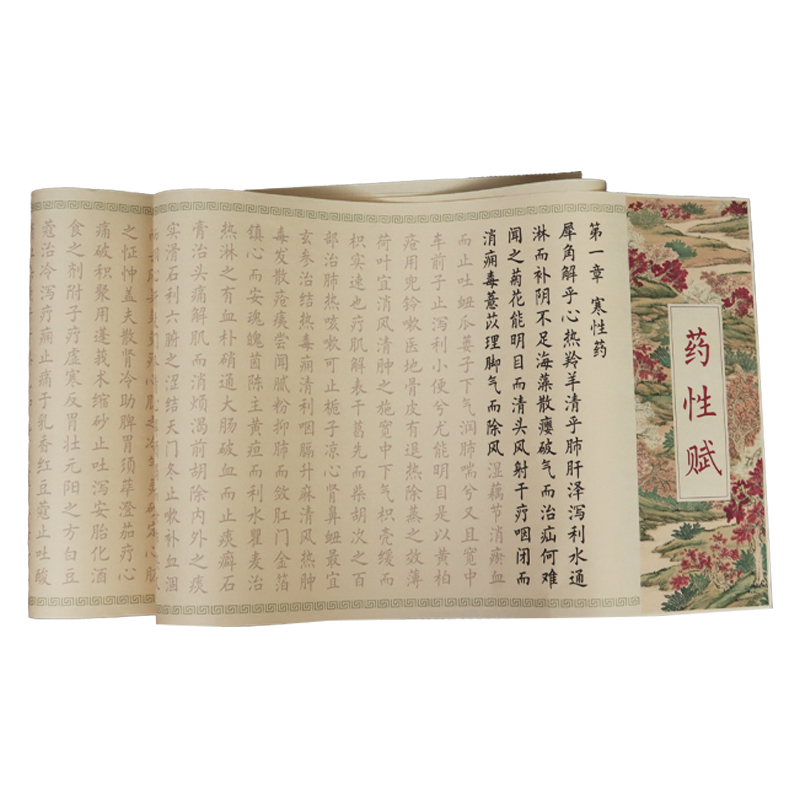 药性赋
第一章 寒性药
犀角解乎心热羚羊清乎肺肝泽泻利水通
淋而补阴不足海藻散瘿破气而治疝何难
闻之菊花能明目而清头风射干疗咽闭而
消痈毒薏苡理脚气而除风湿藕节消瘀血
而止吐衄瓜蒌子下气润肺喘兮又且宽中
车前子止泻利小便兮尤能明目是以黄柏
疮用兜铃嗽医地骨皮有退热除蒸之效薄
荷叶宜消风清肿之施宽中下气枳壳缓而
枳实速也疗肌解表干葛先而柴胡次之百
部治肺热咳嗽可止栀子凉心肾鼻衄最宜
玄参治结热毒痈清利咽膈升麻清风热肿
毒发散疮痍尝闻腻粉抑肺而敛肛门金箔
镇心而安魂魄茵陈主黄疸而利水瞿麦治
热淋之有血朴硝通大肠破血而止痰癖石
膏治头痛解肌而消烦渴前胡除内外之痰
实滑石利六腑之涩结天门冬止嗽补血涸
之怔忡盖夫散肾冷助脾胃须荜澄茄疗心
痛破积聚用蓬莪术缩砂止吐泻安胎化酒
食之剂附子疗虚寒反胃壮元阳之方白豆
蔻治冷泻疗痈止痛于乳香红豆蔻止吐酸